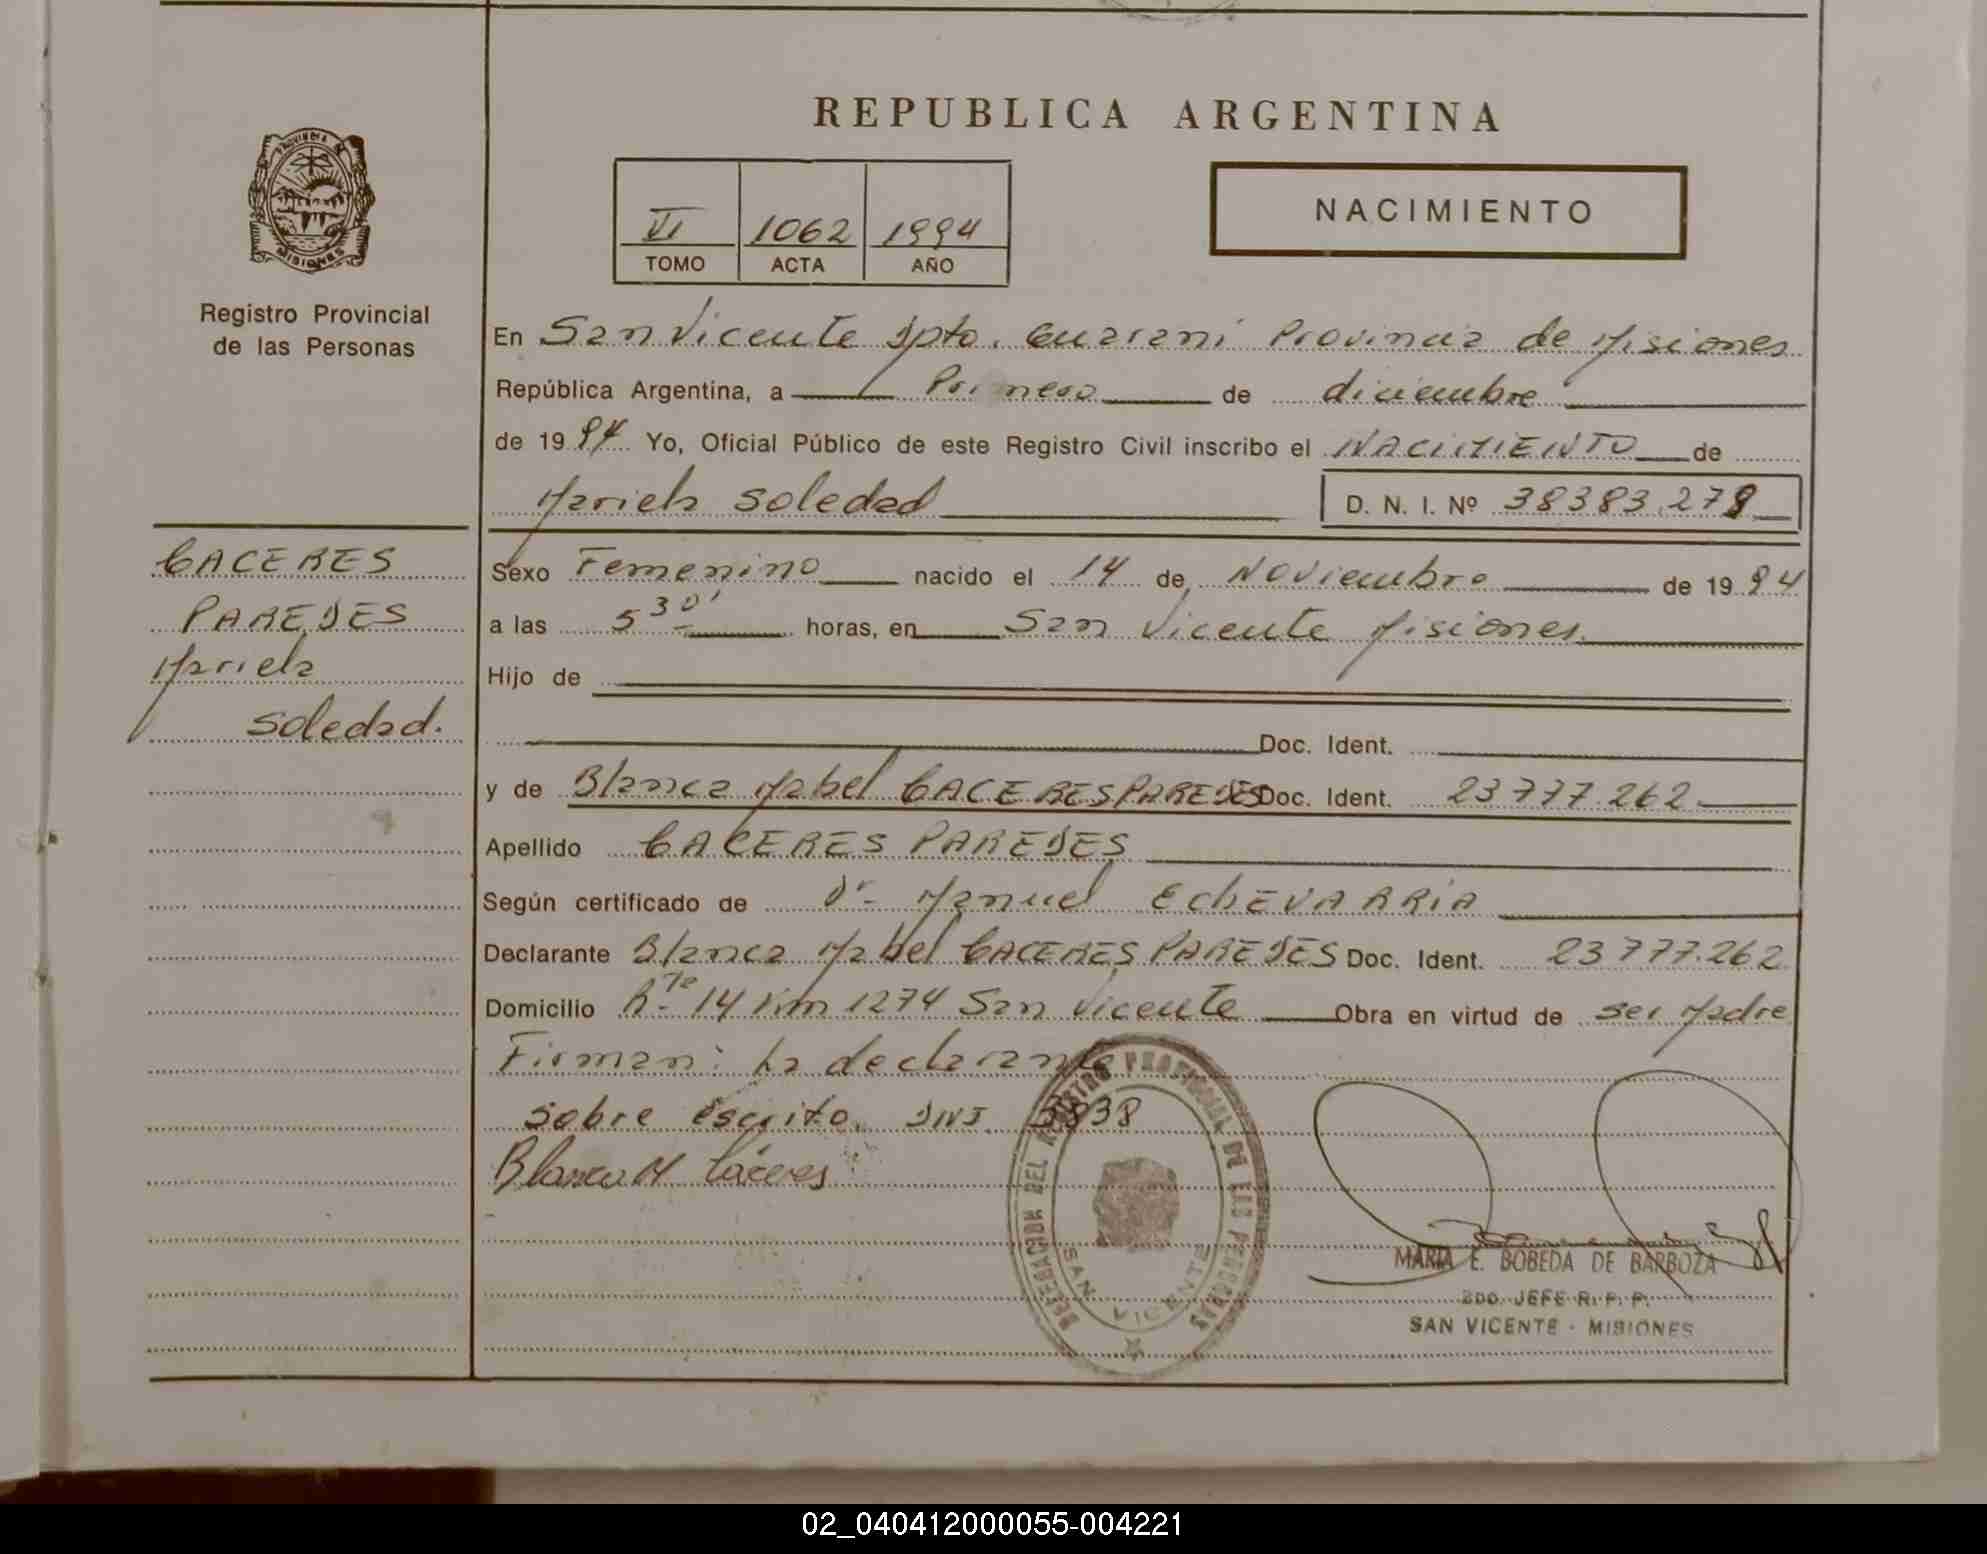 REPUBLICA ARGENTINA
PROVINCIA
MISIONES
Registro Provincial
de las Personas
VI 1062 1994
TOMO ACTA AÑO
NACIMIENTO
En San Vicente Dpto. Guaraní Provincia de Misiones
República Argentina, a Primero de diciembre
de 1994 Yo, Oficial Público de este Registro Civil inscribo el NACIMIENTO de
Mariela Soledad D. N. I. Nº 38383.278
CACERES
PAREDES
Mariela
Soledad.
Sexo Femenino nacido el 14 de Noviembre de 1994
a las 5 30' horas, en San Vicente Misiones
Hijo de
Doc. Ident.
y de Blanca Mabel CACERES PAREDES Doc. Ident. 23777.262
Apellido CACERES PAREDES
Según certificado de Dr. Manuel EchEVARRIA
Declarante Blanca Mabel CACERES PAREDES Doc. Ident. 23777.262
Domicilio Rta 14 Km 1274 San Vicente Obra en virtud de ser Madre
Firman: La declarante
Sobre escrito. DNI. 3838
Blanca M Cáceres
DELEGACION DEL REGISTRO PROVINCIAL DE LAS PERSONAS
SAN VICENTE
MARIA E. BOBEDA DE BARBOZA
2DO. JEFE R. P. P.
SAN VICENTE - MISIONES
02_040412000055-004221